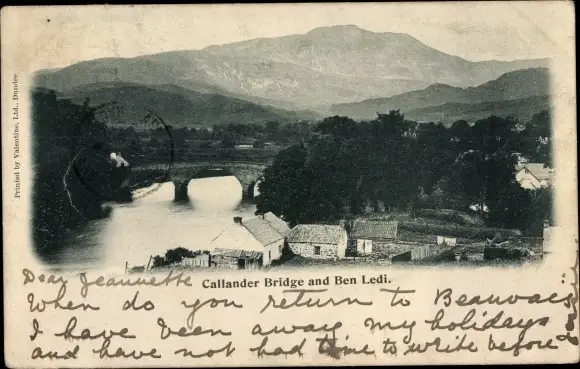 Printed by Valentine, Ltd., Dundee
Callander Bridge and Ben Ledi.
Dear Jeannette
When do you return to Beauvais
I have been away my holidays
and have not had time to write before